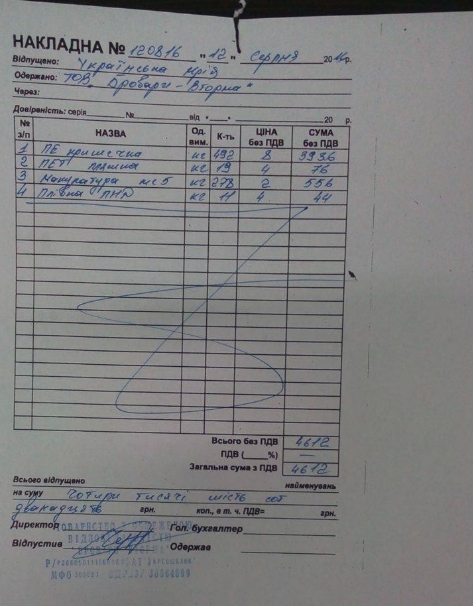 НАКЛАДНА № 120816 "12" Серпня 2016р.
Відпущено: Українська мрія
Одержано: ТОВ "Бровари-Вторма"
Через:
Довіреність: серія № від "  " 20 р.
№ з/п НАЗВА Од. вим. К-ть ЦІНА без ПДВ СУМА без ПДВ
1 ПЕ кришечка кг 492 8 3936
2 ПЕТ пляшка кг 19 4 76
3 Макулатура мс5 кг 278 2 556
4 Плівка кг 11 4 44
Всього без ПДВ 4612
ПДВ (____%) —
Загальна сума з ПДВ 4612
Всього відпущено найменувань
на суму Чотири тисячі шість сот
дванадцять грн. коп., в т. ч. ПДВ= грн.
Директор Гол. бухгалтер
Відпустив Одержав